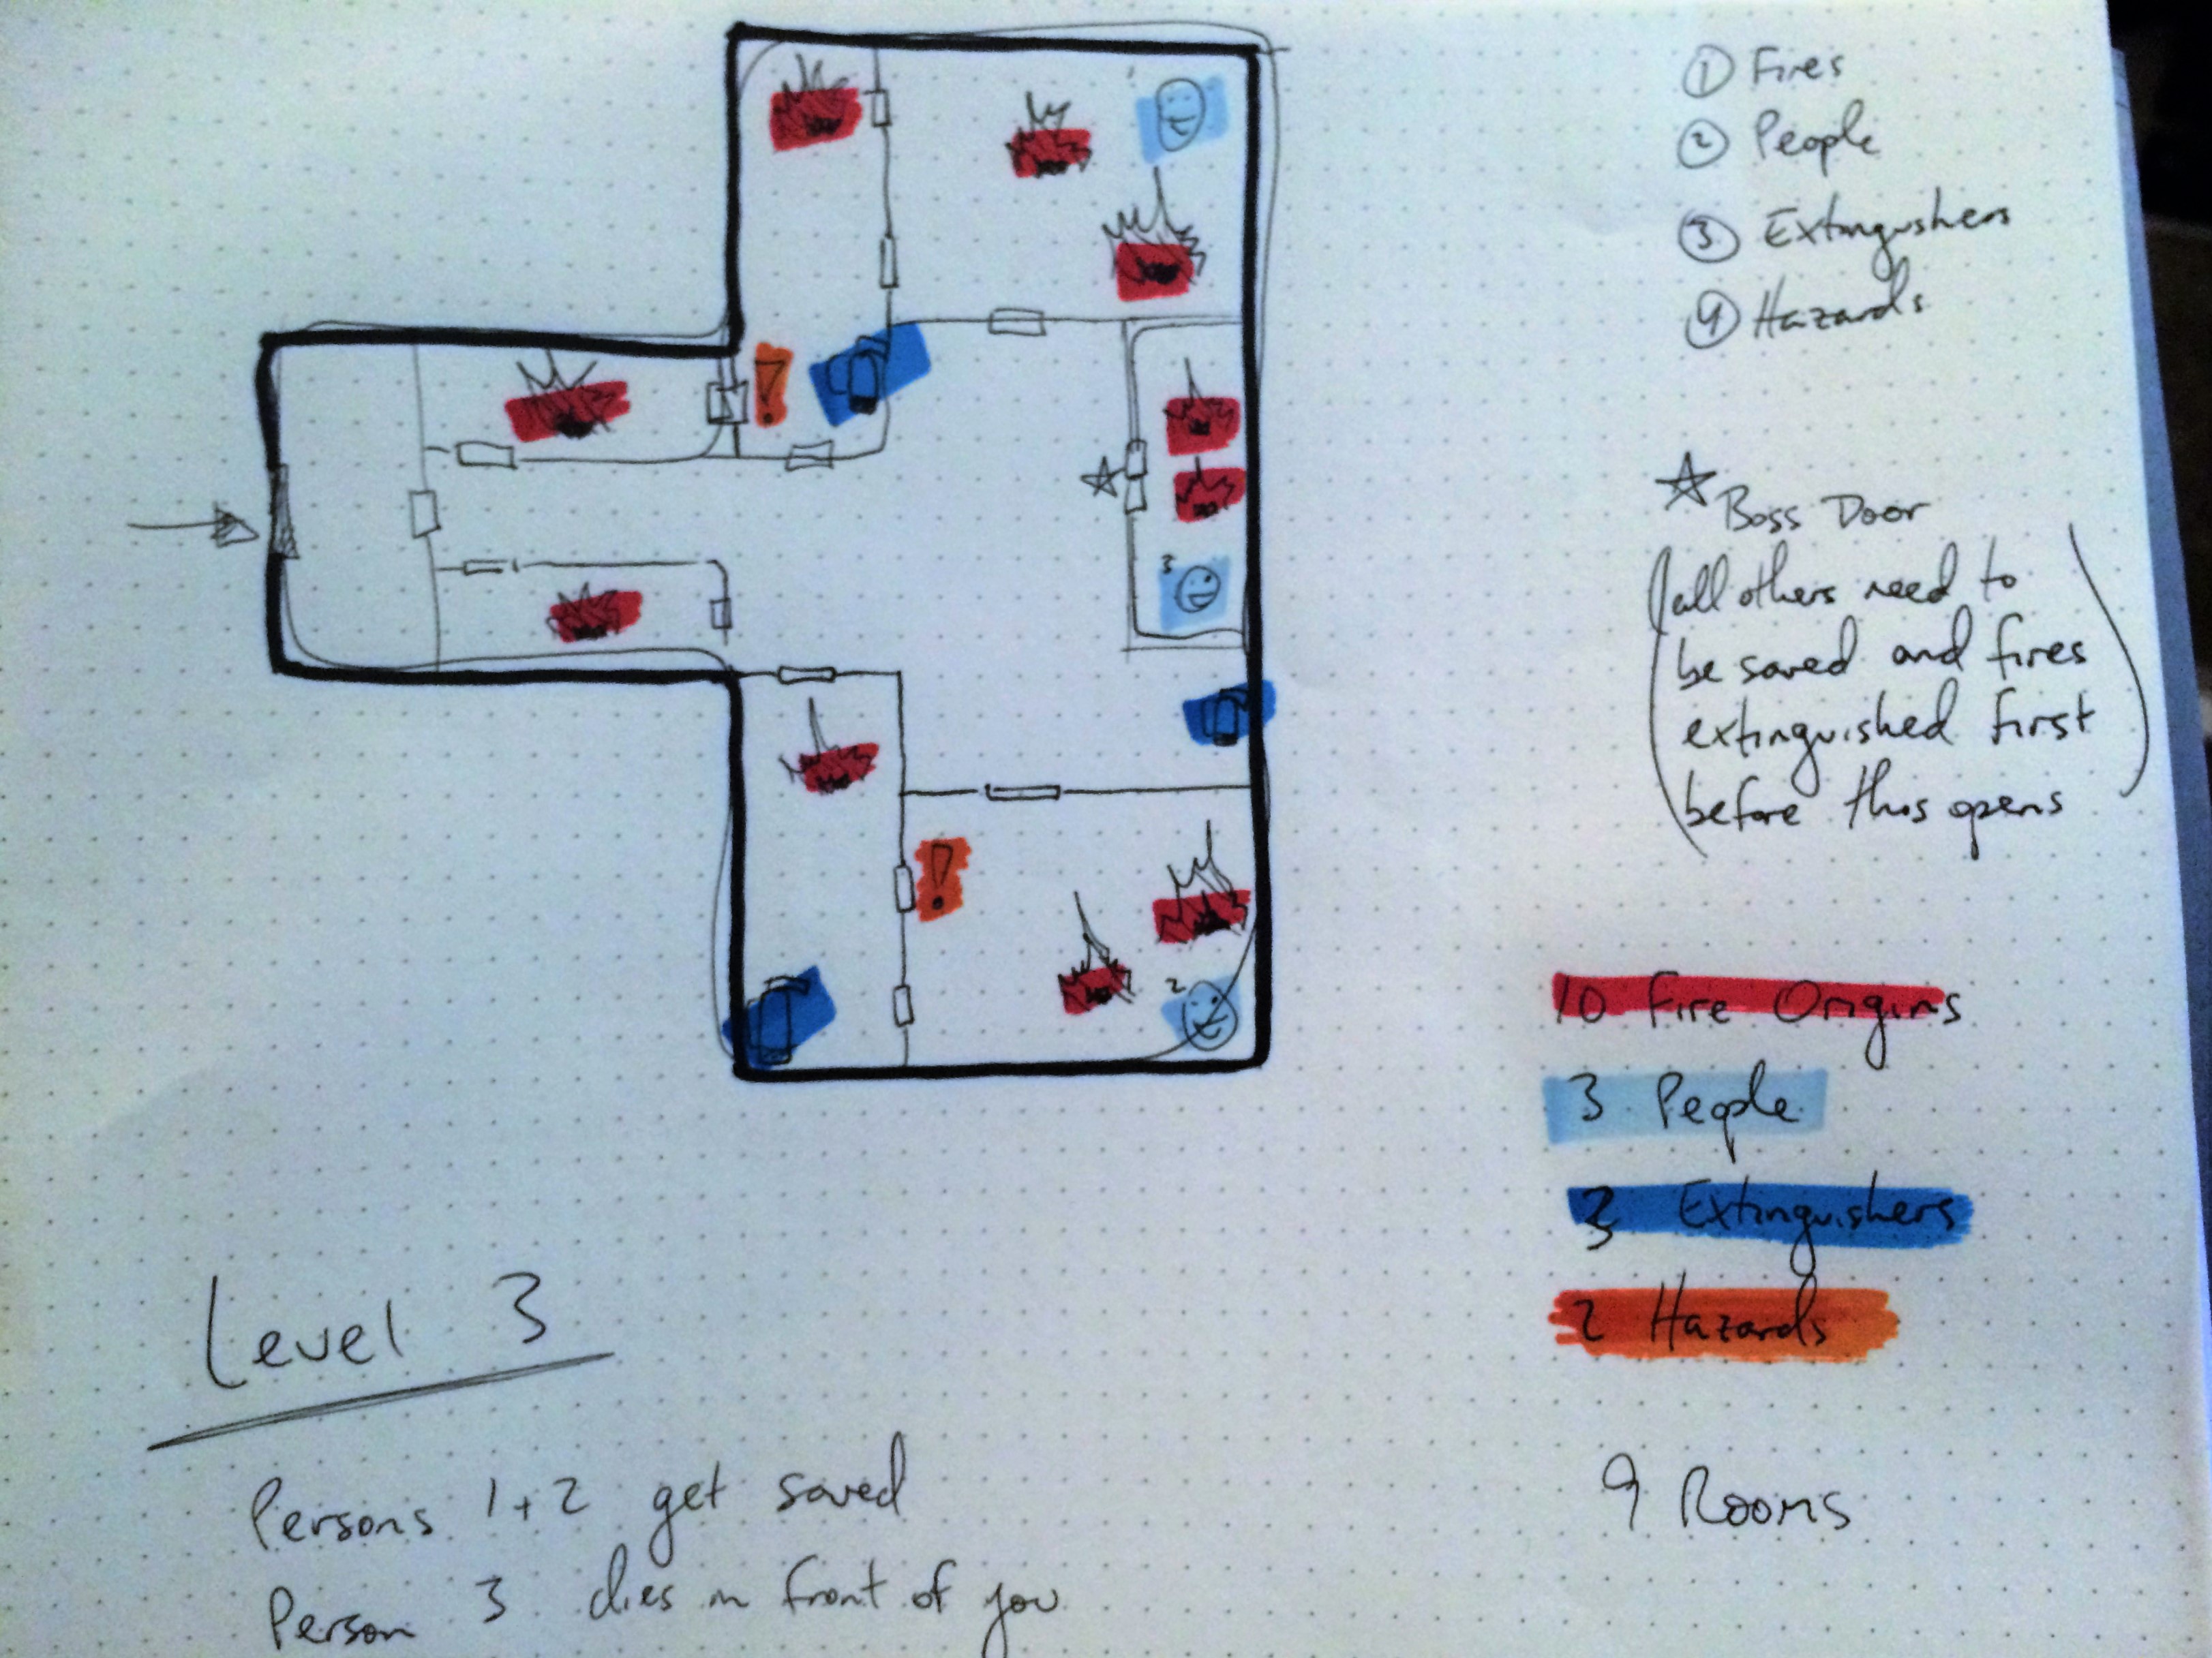 ① Fires
② People
③ Extingushers
④ Hazards
☆ Boss Door
(all others need to
be saved and fires
extinguished first
before this opens)
!
3
!
2
10 Fire Origins
3 People
3 Extinguishers
2 Hazards
9 Rooms
Level 3
Persons 1+2 get saved
Person 3 dies in front of you